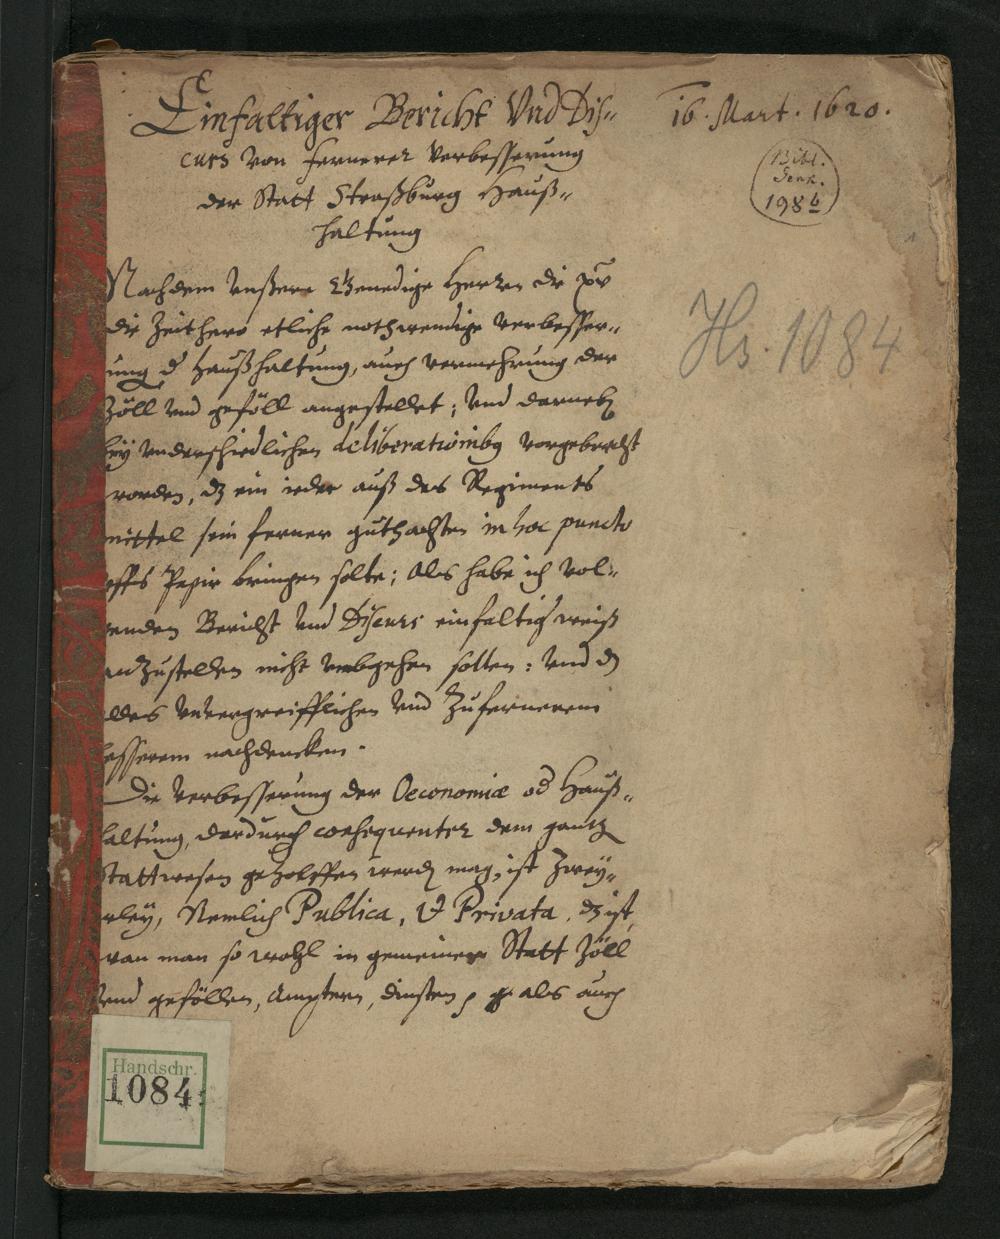 Einfaltiger Bericht Vnd Dis=
curs von fernerer Verbesserung
der Statt Straßburg Hauß=
haltung
16. Mart. 1620.
Bibl.
Denk.
198b
Hs. 1084
Nachdem Vnßere Gnedige Herren die XV
die Zeithero etliche nothwendige Verbesser=
ung d Haußhaltung, auch vermehrung der
Zöll vnd geföll angestellet; vnd darneb
bey vnderschiedlichen deliberationibus vorgebracht
worden, dz ein ieder auß des Regiments
mittel sein ferner guthachten in hoc puncto
auffs Papir bringen solte; Als habe ich vol=
genden Bericht vnd Discurs einfaltig weiß
anzustellen nicht vmbgehen sollen: vnd dz
alles vnvergreifflichen vnd Zufernerem
besserem nachdencken.
Die Verbesserung der Oeconomiæ od Hauß=
haltung, dardurch consequenter dem gantz
Stattwesen geholffen werd mag, ist Zwey=
erley, Nemlich Publica, & Privata, dz ist,
wan man so wohl in gemeiner Statt Zöll
vnd gefällen, Ämptern, diensten als auch
Handschr.
1084